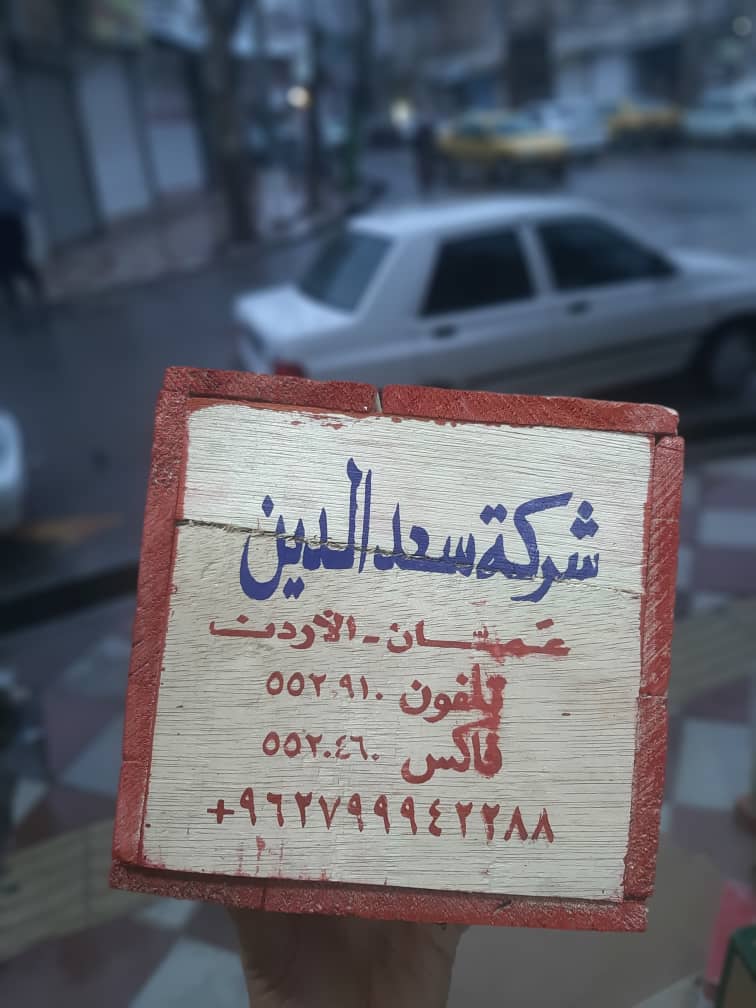 شركة سعد الدين
عمان - الأردن
تلفون ٥٥٢٠٩١٠
فاكس ٥٥٢٠٤٦٠
+٩٦٢٧٩٩٩٤٢٢٨٨